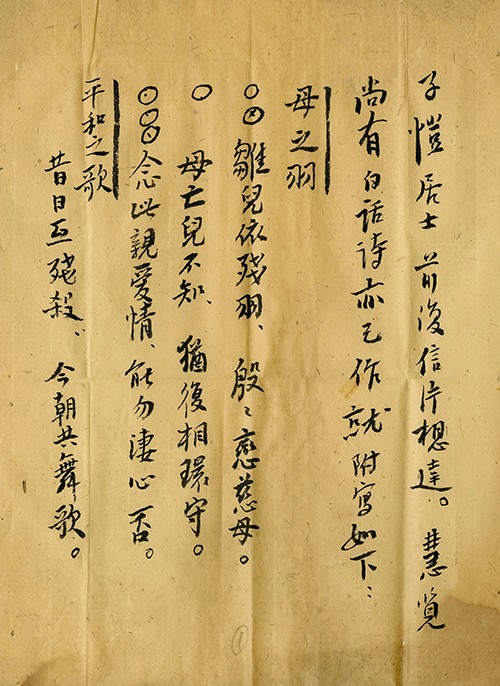 子愷居士 前復信片想達。 慧覽
尚有白話詩亦已作就附寫如下：
母之羽
○○雛兒依殘羽、殷々戀慈母。
○母亡兒不知、猶復相環守。
○○○念此親愛情、能勿淒心否。
平和之歌
昔日互殘殺、今朝共舞歌。
①